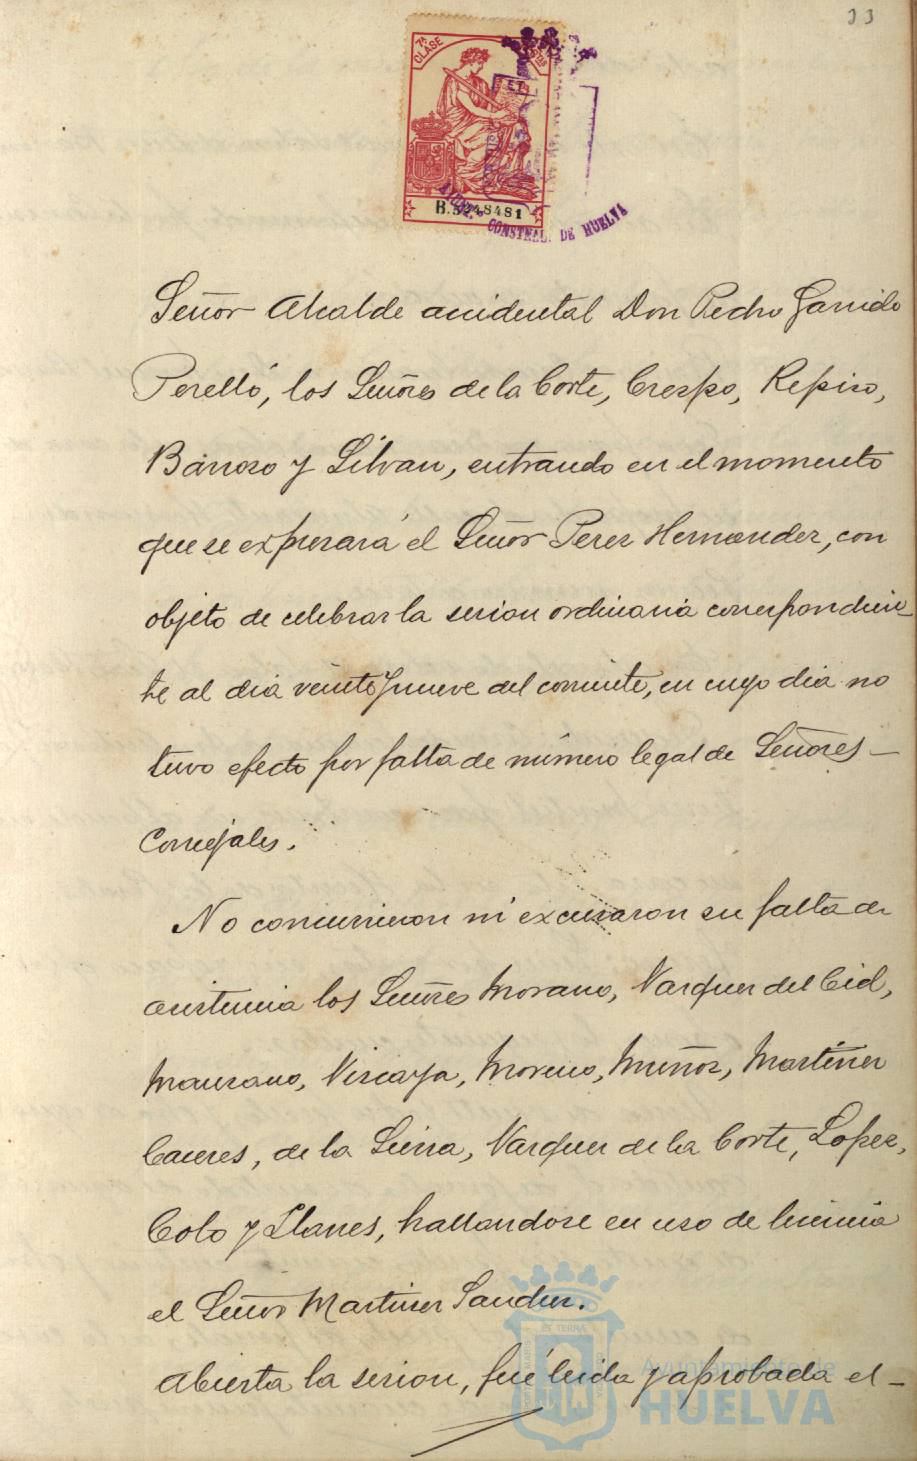 33
7ª CLASE
B.5248481
AYUNT.º CONSTNAL. DE HUELVA
Señor Alcalde accidental Don Pedro Garrido
Perelló, los Señores de la Corte, Crespo, Repiso,
Barroso y Silvan, entrando en el momento
que se expresará el Señor Perez Hernandez, con
objeto de celebrar la sesion ordinaria correspondien
te al dia veintiynueve del corriente, en cuyo dia no
tuvo efecto por falta de número legal de Señores
Concejales.
No concurrieron ni excusaron su falta de
asistencia los Señores Morano, Vazquez del Cid,
Manzano, Vizcaya, Moreno, Muñoz, Martinez
Caceres, de la Sierra, Vazquez de la Corte, Lopez,
Coto y Llanes, hallandose en uso de licencia
el Señor Martinez Sanchez.
Abierta la sesion, fué leida y aprobada el
Ayuntamiento de
HUELVA